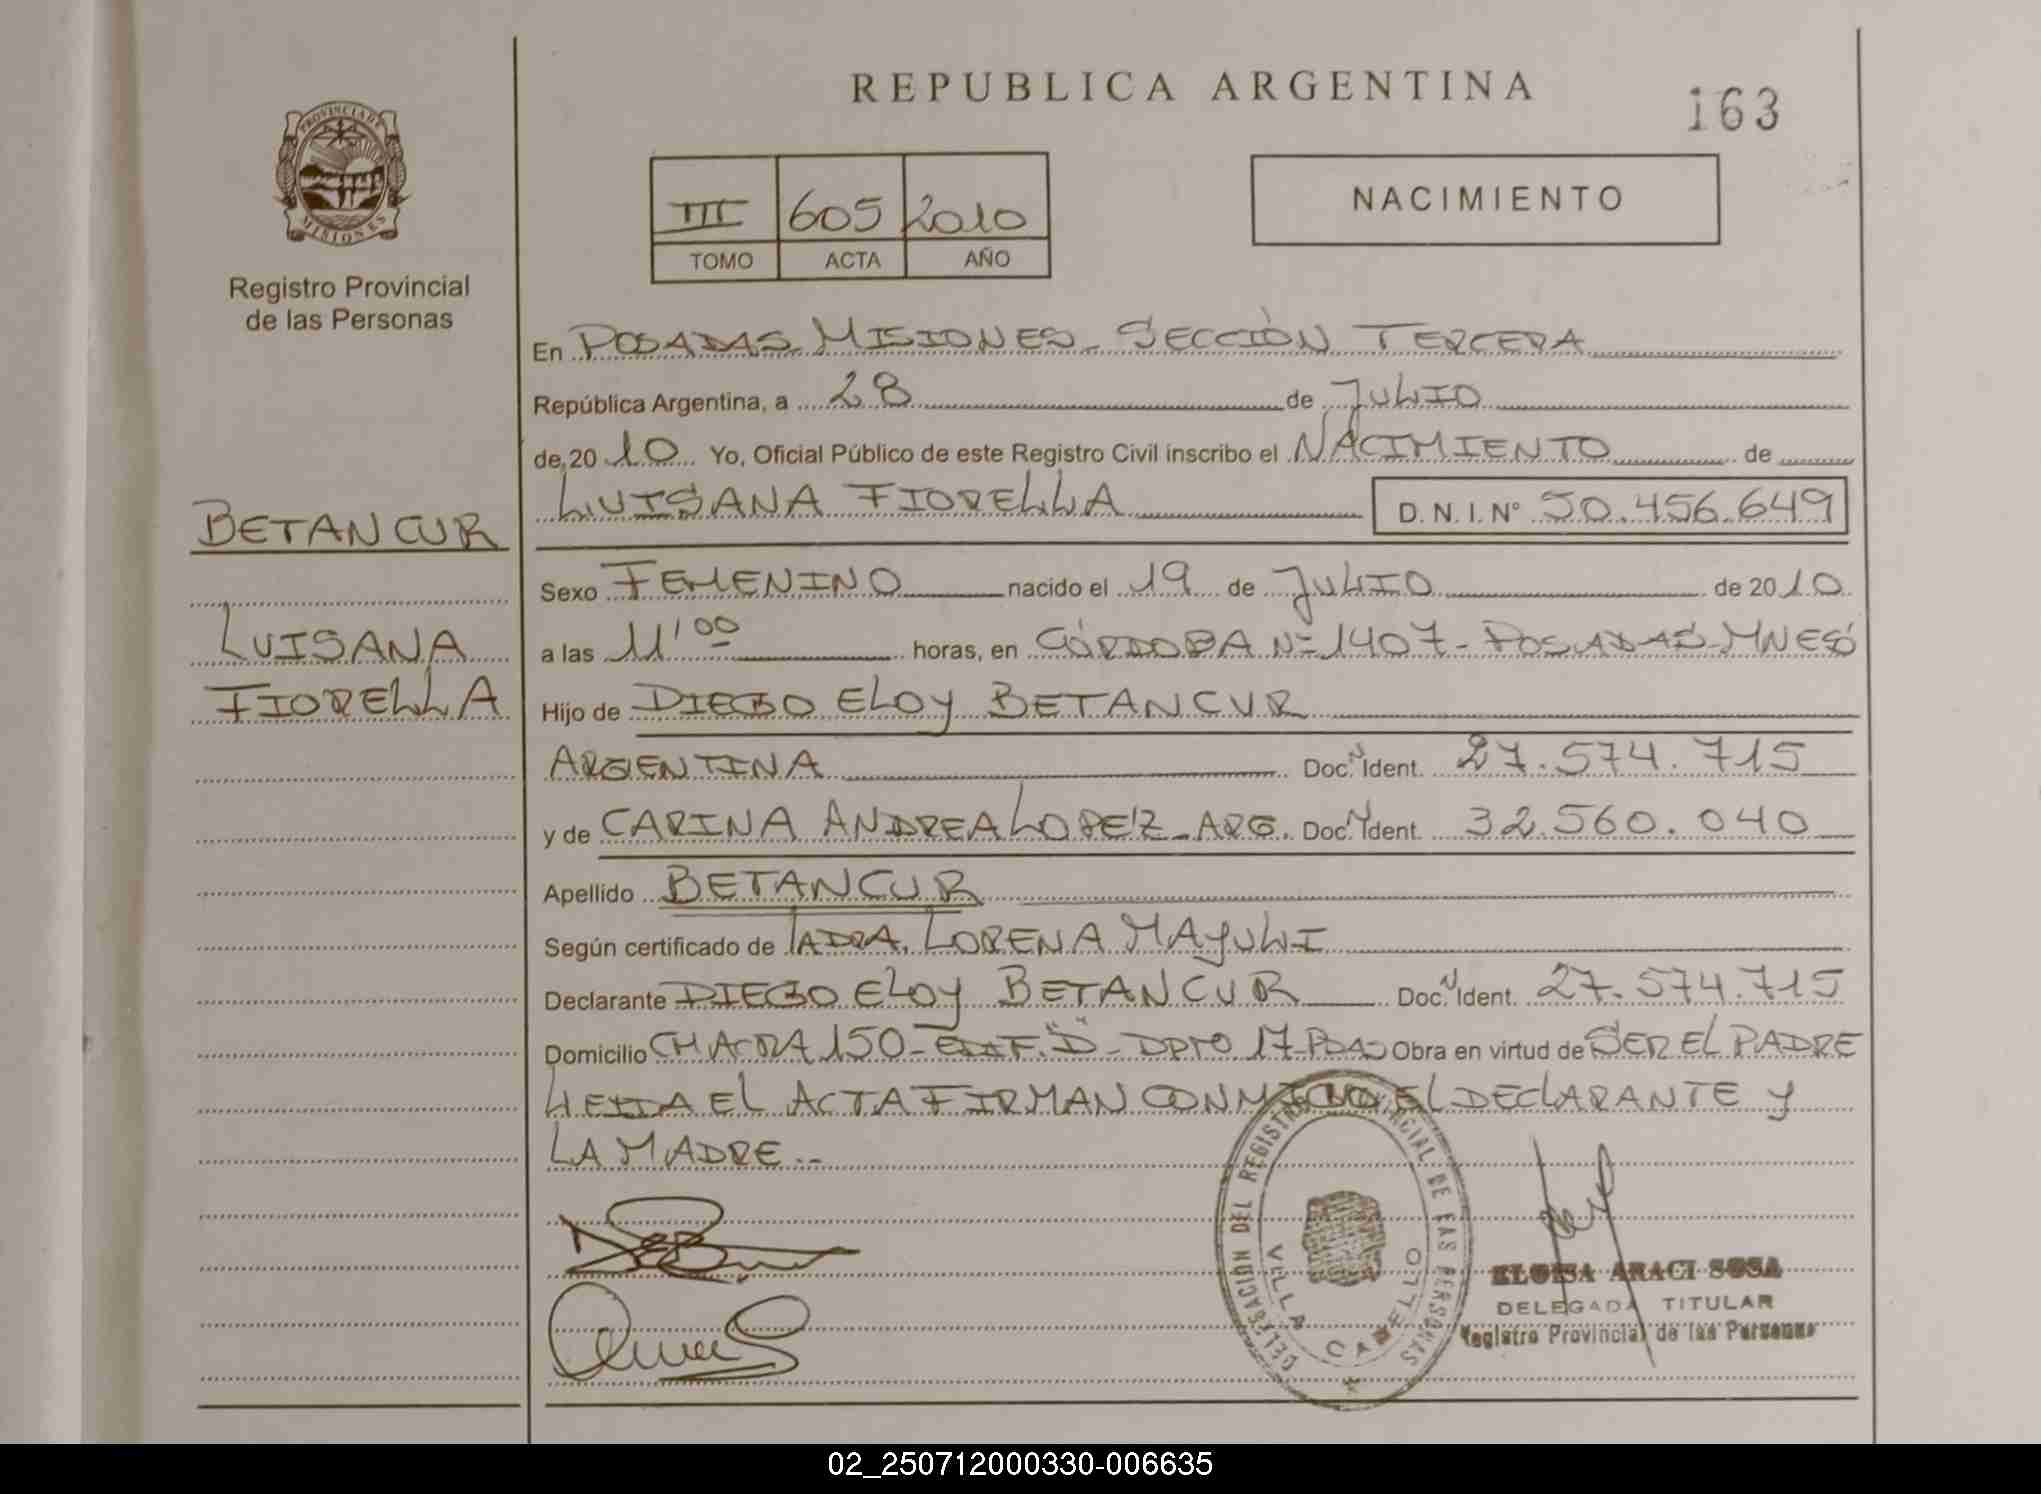 REPUBLICA ARGENTINA
163
PROVINCIA DE
MISIONES
Registro Provincial
de las Personas
III 605 2010
TOMO ACTA AÑO
NACIMIENTO
En POSADAS MISIONES - SECCIÓN TERCERA
República Argentina, a 28 de JULIO
de 20 10 Yo, Oficial Público de este Registro Civil inscribo el NACIMIENTO de
LUISANA FIORELLA D.N.I.Nº 50.456.649
BETANCUR
LUISANA
FIORELLA
Sexo FEMENINO nacido el 19 de JULIO de 2010
a las 11'00 horas, en CÓRDOBA Nº 1407 - POSADAS - MNES
Hijo de DIEGO ELOY BETANCUR
ARGENTINA Doc. Ident. 27.574.715
y de CARINA ANDREA LOPEZ - ARG. Doc. Ident. 32.560.040
Apellido BETANCUR
Según certificado de LORENA MAYULI
Declarante DIEGO ELOY BETANCUR Doc. Ident. 27.574.715
Domicilio CHACRA 150 - EDIF. "D" - DPTO 17 - PDAS Obra en virtud de SER EL PADRE
LEIDA EL ACTA FIRMAN CONMIGO EL DECLARANTE Y
LA MADRE. -
DELEGACION DEL REGISTRO PROVINCIAL DE LAS PERSONAS
VILLA CABELLO
ELOISA ARACI SOSA
DELEGADA TITULAR
Registro Provincial de las Personas
02_250712000330-006635